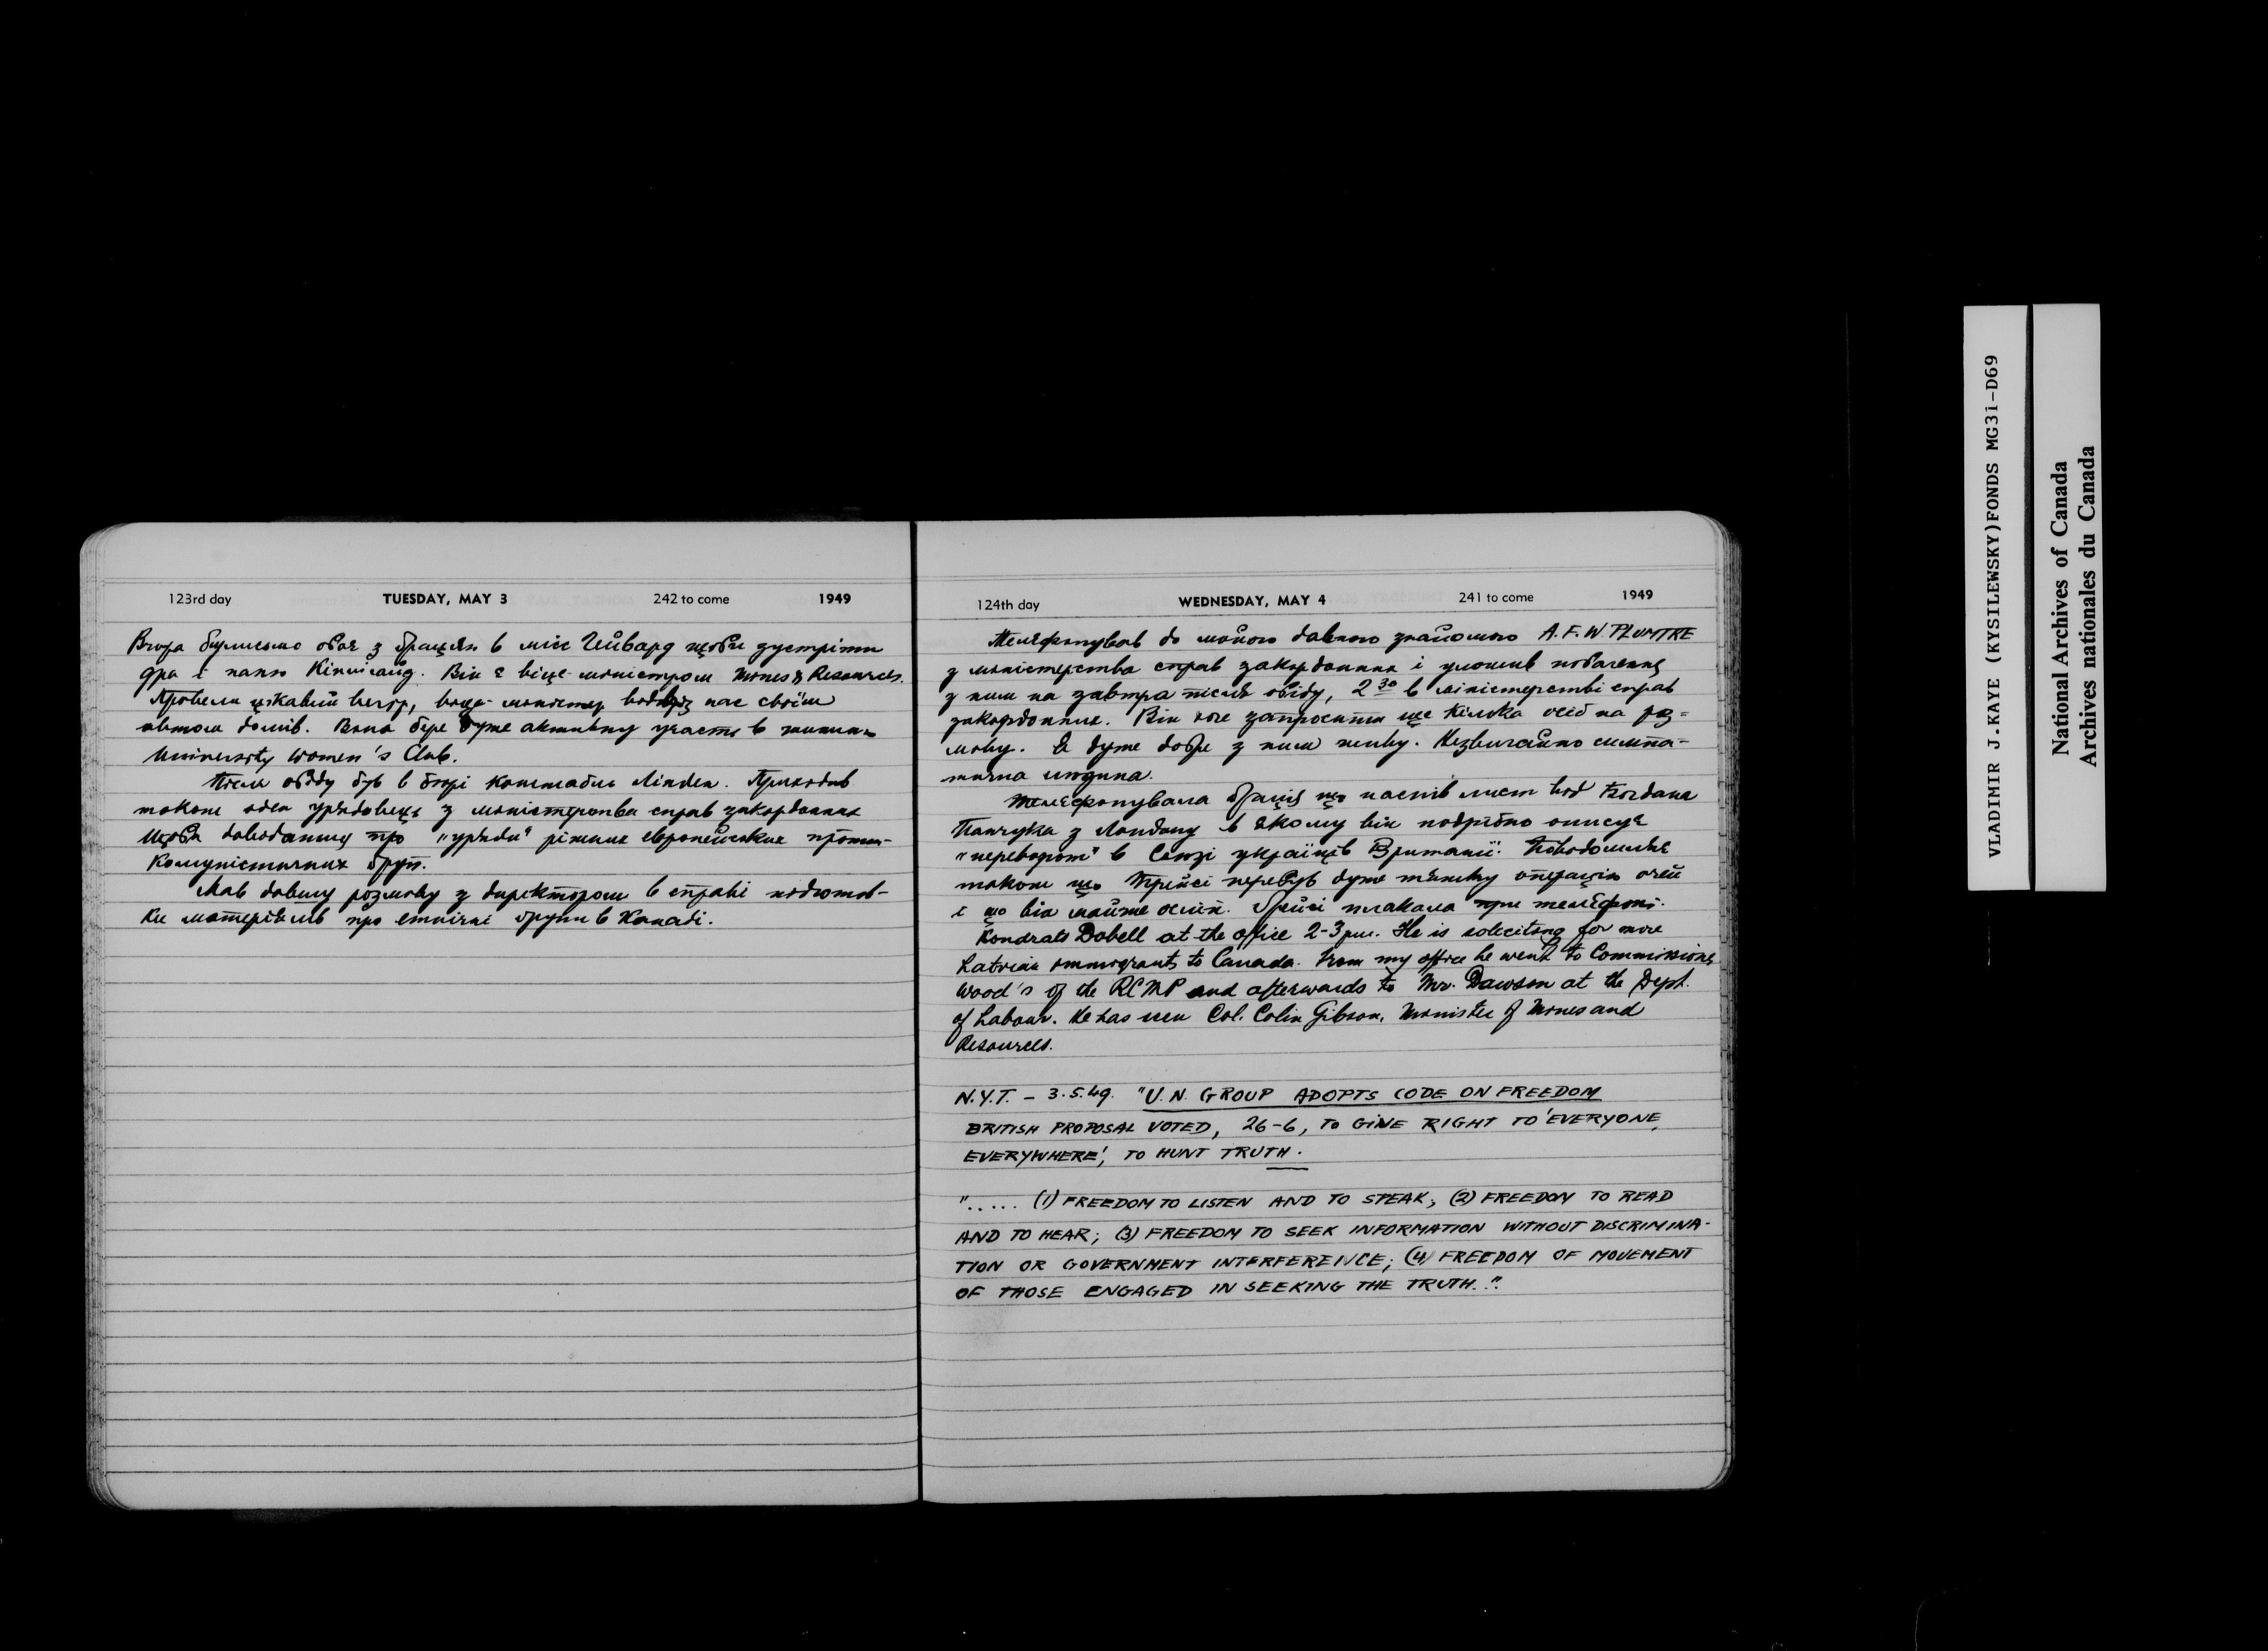 123rd day TUESDAY, MAY 3 242 to come 1949
Вчора булисьмо обоє з Ґрацією в місс Гейвард щоби зустріти
дра і паню Кінлісайд. Він є віце-міністром Mines & Resources.
Провели цікавий вечір, віце-міністер відвіз нас своїм
автом домів. Вона бере дуже активну участь в
University Women's Club.
Після обіду був в бюрі Приходив
також оден урядовець з міністерства справ закордонних
щоби довідатись про „уряди" ріжних европейських проти-
комуністичних ґруп.
Мав довшу розмову з директором в справі підготов-
ки матеріялів про етнічні ґрупи в Канаді.
124th day WEDNESDAY, MAY 4 241 to come 1949
Телєфонував до мойого давного знайомого A.F.W. PLUMTRE
з міністерства справ закордонних і умовив побачення
з ним на завтра після обіду, 2 30 в міністерстві справ
закордонних. Він хоче запросити ще кілька осіб на роз-
мову. Я дуже добре з ним живу. Незвичайно симпа-
тична людина.
Телєфонувала Ґрація що наспів лист від Богдана
Панчука з Лондону в якому він подрібно описує
„переворот" в Союзі українців Британії. Повідомляє
також що перебув дуже тяжку операцію очей
і що він майже осліп. Ґрейсі плакала при телєфоні.
Kondrats Dobell at the office 2-3 pm. He is soliciting for more
Latvian immigrants to Canada. From my office he went to Commissioner
Wood's of the RCMP and afterwards to Mr. Dawson at the Dept.
of Labour. He has seen Col. Colin Gibson, Minister of Mines and
Resources.
N.Y.T. – 3.5.49. "U.N. GROUP ADOPTS CODE ON FREEDOM
BRITISH PROPOSAL VOTED, 26-6, TO GIVE RIGHT TO 'EVERYONE,
EVERYWHERE', TO HUNT TRUTH.
"..... (1) FREEDOM TO LISTEN AND TO SPEAK; (2) FREEDOM TO READ
AND TO HEAR; (3) FREEDOM TO SEEK INFORMATION WITHOUT DISCRIMINA-
TION OR GOVERNMENT INTERFERENCE; (4) FREEDOM OF MOVEMENT
OF THOSE ENGAGED IN SEEKING THE TRUTH.."
VLADIMIR J.KAYE (KYSILEWSKY)FONDS MG31-D69
National Archives of Canada
Archives nationales du Canada